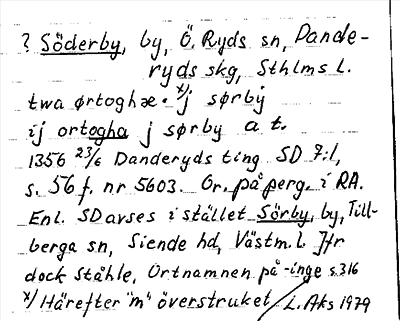 ? Söderby, by, Ö. Ryds sn, Dande-
ryds skg, Sthlms l.
twa ørtoghæ. x) j sørbÿ
ij ortogha j sørby a t.
1356 23/6 Danderyds ting SD 7:1,
s. 56 f. nr 5603. Or. på perg. i RA.
Enl. SD avses i stället Sörby, by, Till-
berga sn, Siende hd, Västm. l. Jfr
dock Ståhle, Ortnamnen på -inge s. 316
x) Härefter "m" överstruket / L. Aks 1979